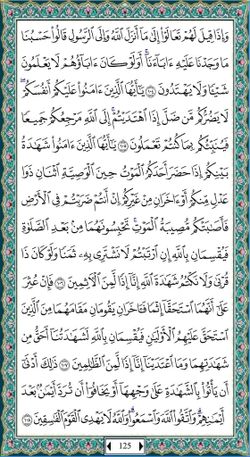 وَإِذَا قِيلَ لَهُمْ تَعَالَوْا۟ إِلَىٰ مَآ أَنزَلَ ٱللَّهُ وَإِلَى ٱلرَّسُولِ قَالُوا۟ حَسْبُنَا
مَا وَجَدْنَا عَلَيْهِ ءَابَآءَنَآ ۚ أَوَلَوْ كَانَ ءَابَآؤُهُمْ لَا يَعْلَمُونَ
شَيْـًٔا وَلَا يَهْتَدُونَ ١٠٤ يَـٰٓأَيُّهَا ٱلَّذِينَ ءَامَنُوا۟ عَلَيْكُمْ أَنفُسَكُمْ ۖ
لَا يَضُرُّكُم مَّن ضَلَّ إِذَا ٱهْتَدَيْتُمْ ۚ إِلَى ٱللَّهِ مَرْجِعُكُمْ جَمِيعًا
فَيُنَبِّئُكُم بِمَا كُنتُمْ تَعْمَلُونَ ١٠٥ يَـٰٓأَيُّهَا ٱلَّذِينَ ءَامَنُوا۟ شَهَـٰدَةُ
بَيْنِكُمْ إِذَا حَضَرَ أَحَدَكُمُ ٱلْمَوْتُ حِينَ ٱلْوَصِيَّةِ ٱثْنَانِ ذَوَا
عَدْلٍ مِّنكُمْ أَوْ ءَاخَرَانِ مِنْ غَيْرِكُمْ إِنْ أَنتُمْ ضَرَبْتُمْ فِى ٱلْأَرْضِ
فَأَصَـٰبَتْكُم مُّصِيبَةُ ٱلْمَوْتِ ۚ تَحْبِسُونَهُمَا مِنۢ بَعْدِ ٱلصَّلَوٰةِ
فَيُقْسِمَانِ بِٱللَّهِ إِنِ ٱرْتَبْتُمْ لَا نَشْتَرِى بِهِۦ ثَمَنًا وَلَوْ كَانَ ذَا
قُرْبَىٰ ۙ وَلَا نَكْتُمُ شَهَـٰدَةَ ٱللَّهِ إِنَّآ إِذًا لَّمِنَ ٱلْـَٔاثِمِينَ ١٠٦ فَإِنْ عُثِرَ
عَلَىٰٓ أَنَّهُمَا ٱسْتَحَقَّآ إِثْمًا فَـَٔاخَرَانِ يَقُومَانِ مَقَامَهُمَا مِنَ ٱلَّذِينَ
ٱسْتَحَقَّ عَلَيْهِمُ ٱلْأَوْلَيَـٰنِ فَيُقْسِمَانِ بِٱللَّهِ لَشَهَـٰدَتُنَآ أَحَقُّ مِن
شَهَـٰدَتِهِمَا وَمَا ٱعْتَدَيْنَآ إِنَّآ إِذًا لَّمِنَ ٱلظَّـٰلِمِينَ ١٠٧ ذَٰلِكَ أَدْنَىٰٓ
أَن يَأْتُوا۟ بِٱلشَّهَـٰدَةِ عَلَىٰ وَجْهِهَآ أَوْ يَخَافُوٓا۟ أَن تُرَدَّ أَيْمَـٰنٌۢ بَعْدَ
أَيْمَـٰنِهِمْ ۗ وَٱتَّقُوا۟ ٱللَّهَ وَٱسْمَعُوا۟ ۗ وَٱللَّهُ لَا يَهْدِى ٱلْقَوْمَ ٱلْفَـٰسِقِينَ ١٠٨
125